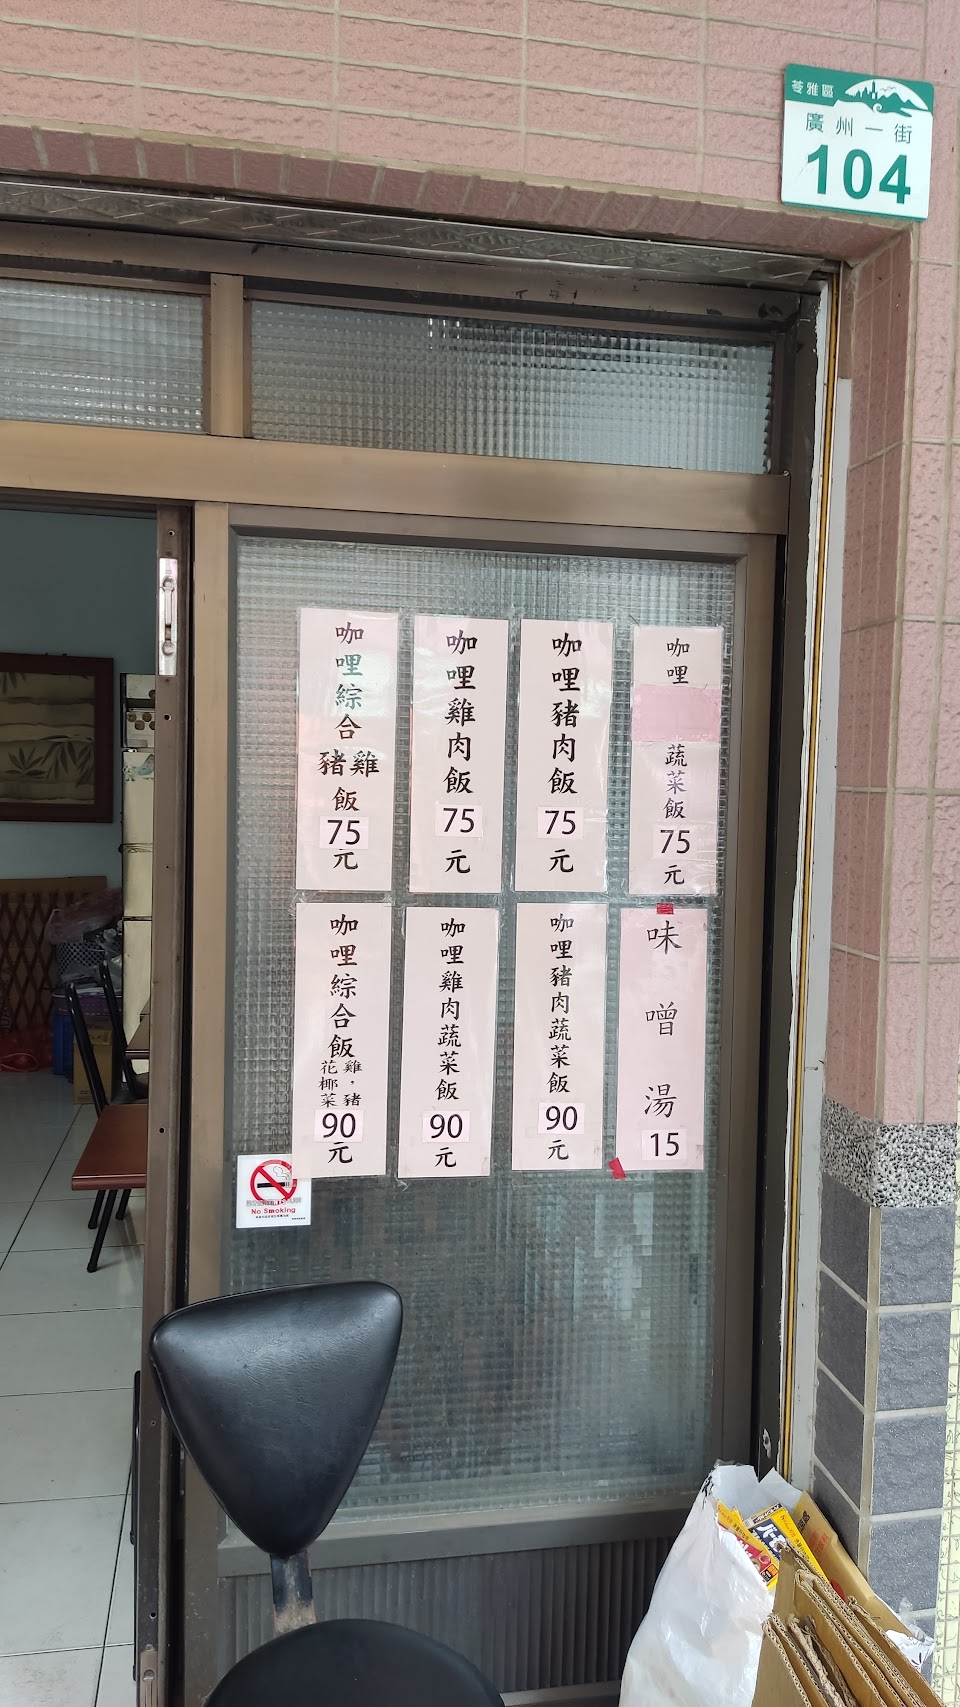 苓雅區
廣州一街
104
咖哩
蔬菜飯
75
元
咖哩豬肉飯
75
元
咖哩雞肉飯
75
元
咖哩綜合
豬雞
飯
75
元
味噌湯
15
咖哩豬肉蔬菜飯
90
元
咖哩雞肉蔬菜飯
90
元
咖哩綜合飯
雞，豬
花椰菜
90
元
No Smoking